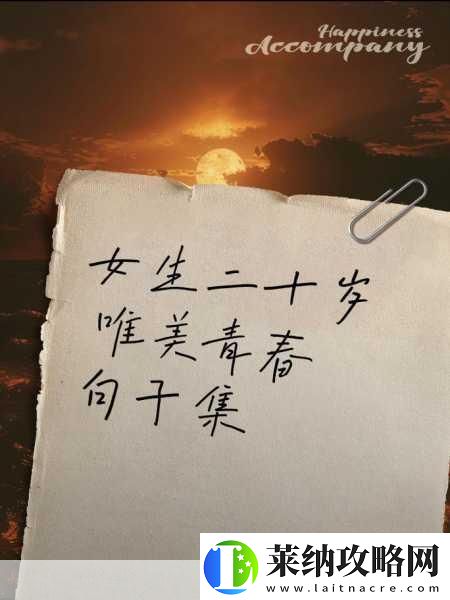 Happiness
Accompany
女生二十岁
唯美青春
句子集
莱纳攻略网
www.laitnacre.com